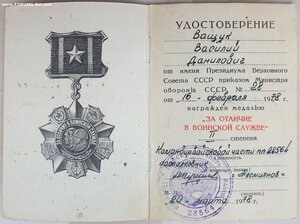 УДОСТОВЕРЕНИЕ
Ващук
Василий
Данилович
от имени Президиума Верховного
Совета СССР приказом Министра
обороны СССР № 28
от "16" февраля 1978 г.
награжден медалью
„ЗА ОТЛИЧИЕ
В ВОИНСКОЙ СЛУЖБЕ"
II степени
Командир войсковой части пп 28564
подполковник
(подпись)
М. П.
"20" марта 1978 г.
28564